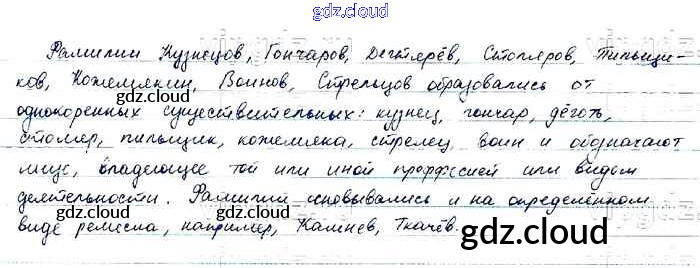 gdz.cloud
Фамилии Кузнецов, Гончаров, Дегтярёв, Столяров, Пильщи-
ков, Кожемякин, Воинов, Стрельцов образовались от
gdz.cloud gdz.cloud
однокоренных существительных: кузнец, гончар, дёготь,
столяр, пильщик, кожемяка, стрелец, воин и обозначают
gdz.cloud gdz.cloud
лицо, владеющее той или иной профессией или видом
деятельности. Фамилии основывались и на определённом
gdz.cloud gdz.cloud
виде ремесла, например, Камнев, Ткачёв.
gdz.cloud